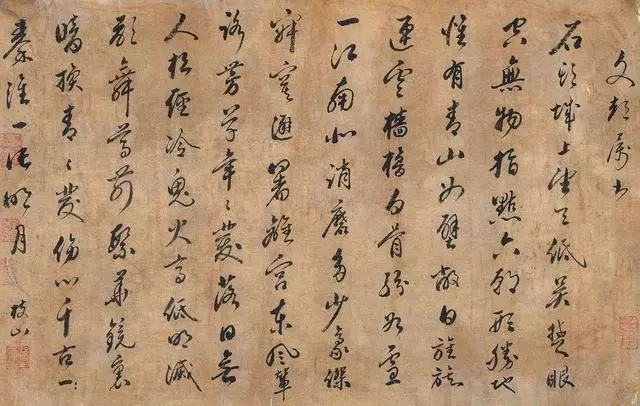 石頭城上望天低吴楚眼
空無物指點六朝形勝地
惟有青山如壁蔽日旌旗
連雲檣櫓白骨紛如雪
一江南北消磨多少豪傑
寂寞避暑離宫東風輦
路芳草年々發落日無
人松徑冷鬼火高低明滅
歌舞尊前繁華鏡裏
暗換青々髮傷心千古一
秦淮一片明月
枝山